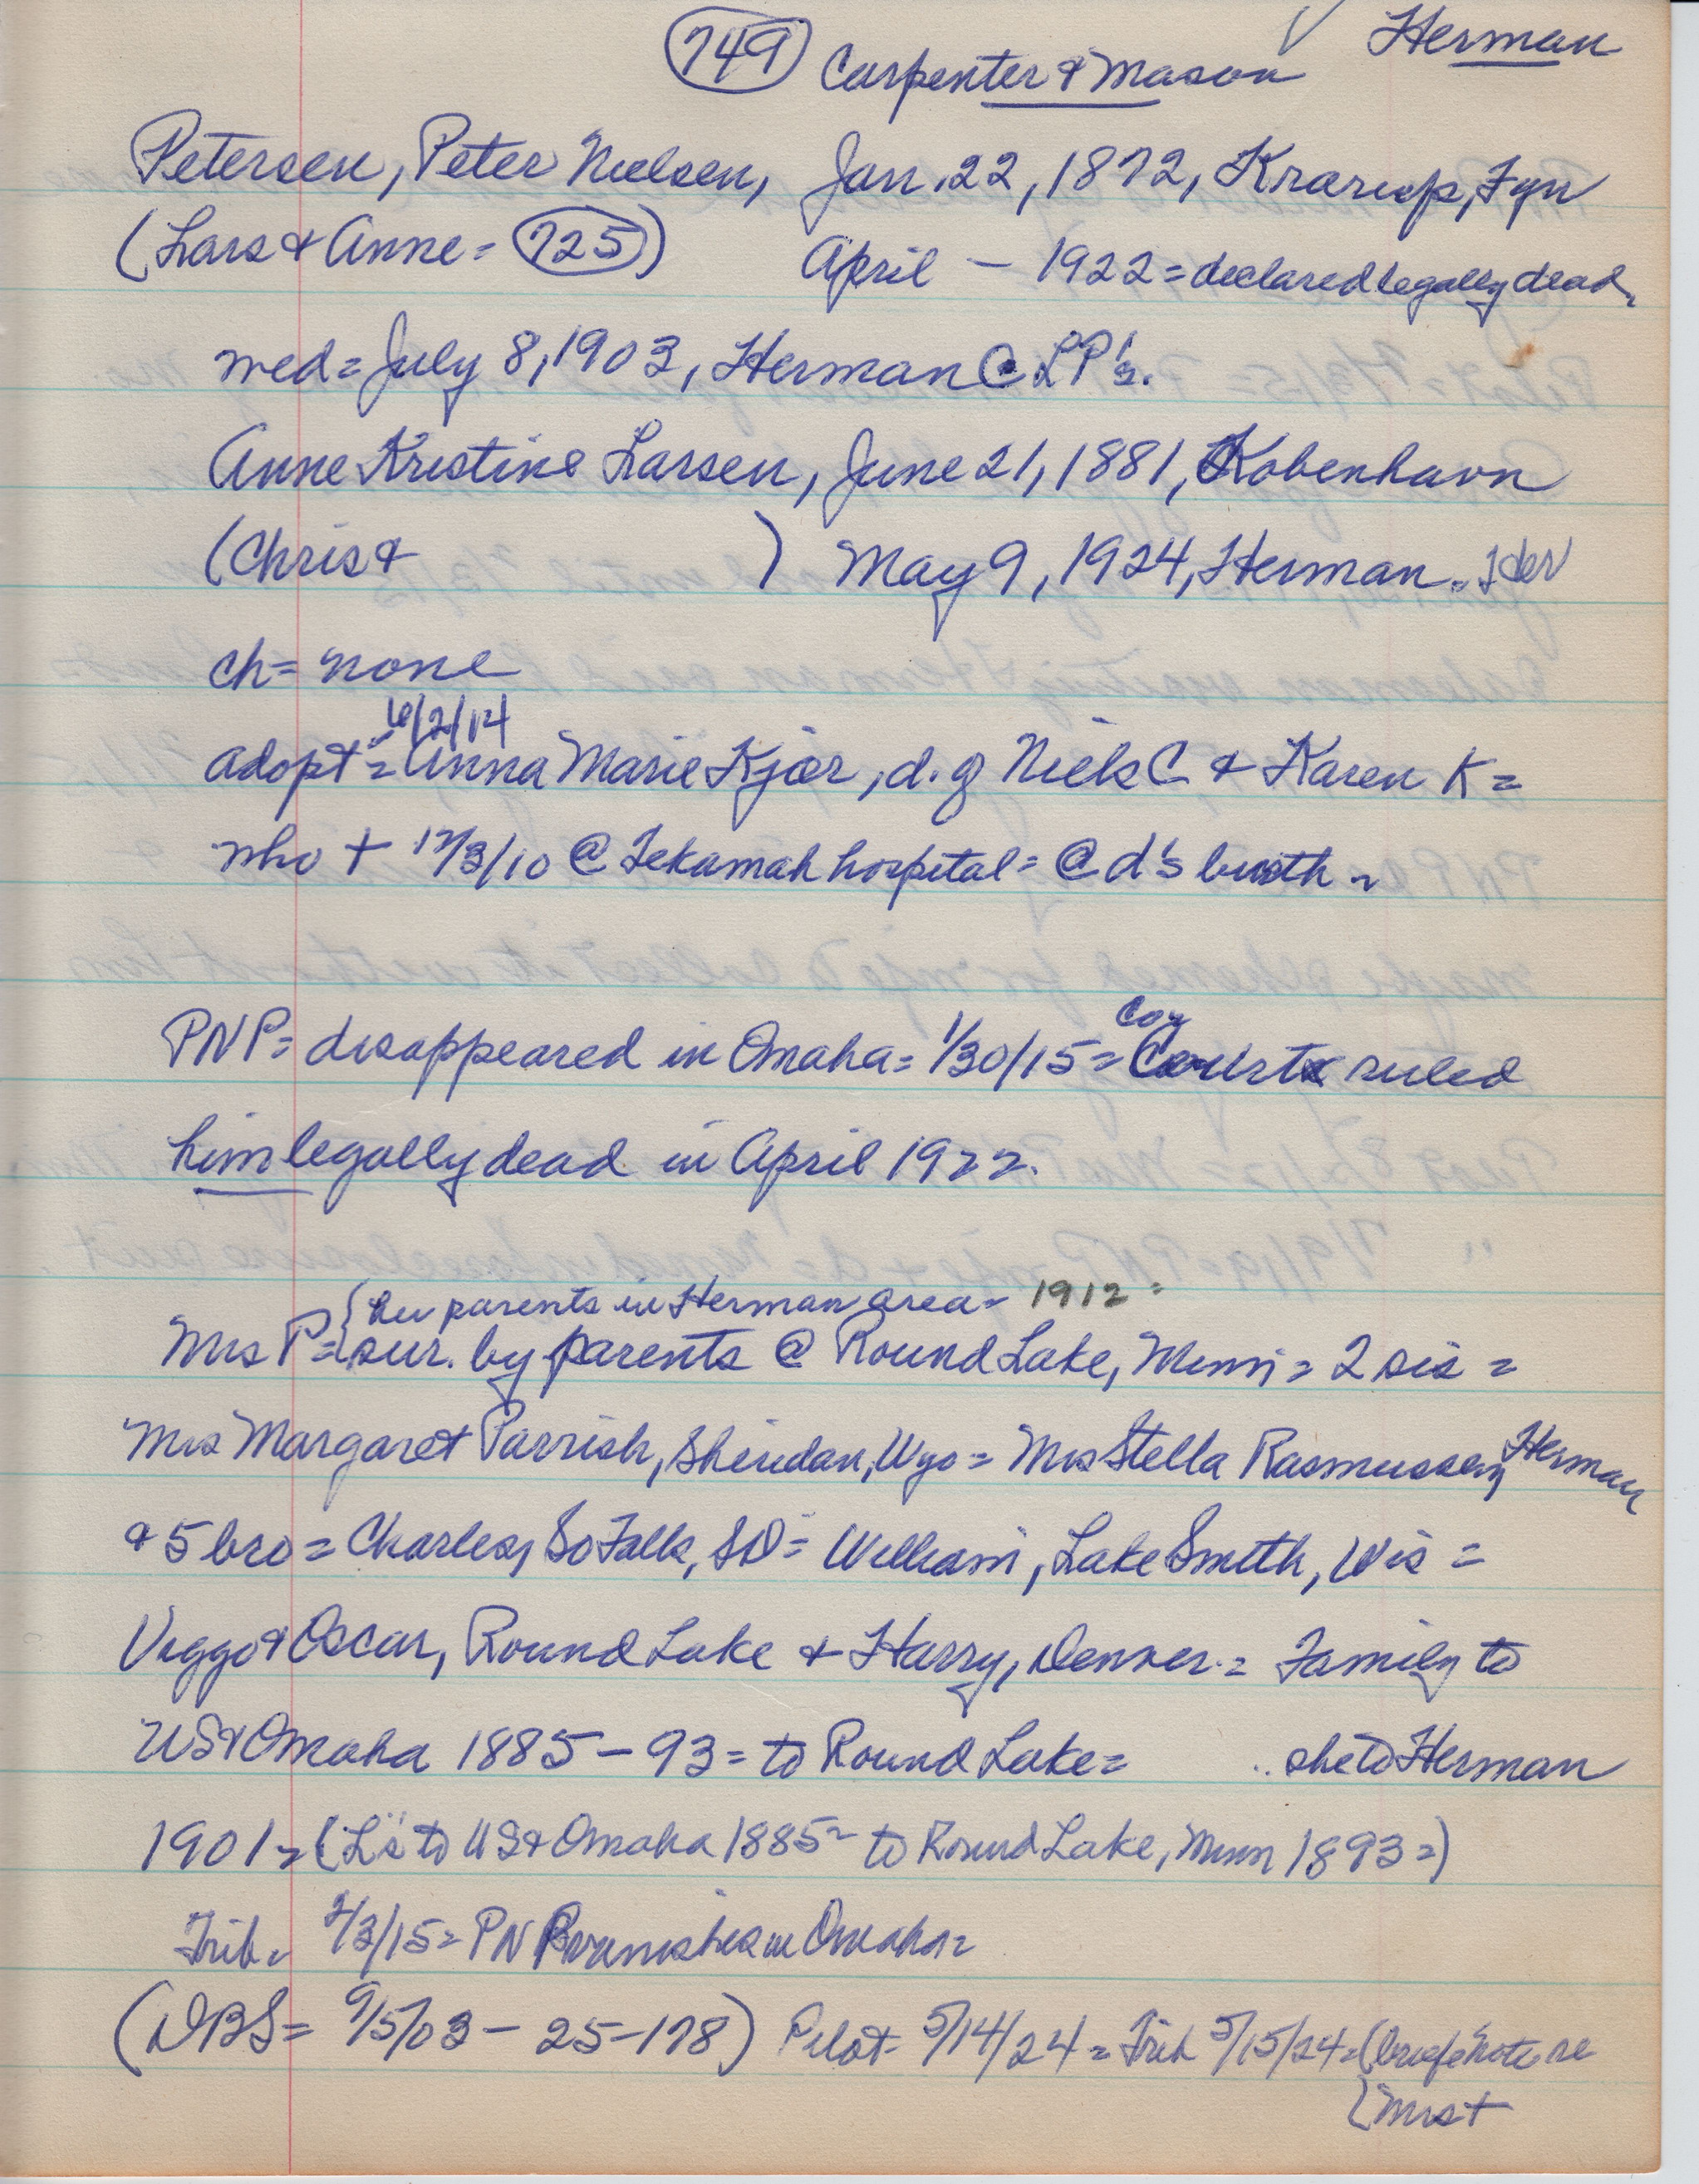 749 Carpenter & Mason ✓ Herman
Petersen, Peter Nielsen, Jan. 22, 1872, Krarup, Fyn
(Lars & Anne = 725) April — 1922 = declared legally dead.
wed = July 8, 1903, Herman @ LP's.
Anne Kristine Larsen, June 21, 1881, Kobenhavn
(Chris & ) May 9, 1924, Herman.
ch = none
6/2/14
adopt = Anna Marie Kjær, d. of Niels C & Karen K =
who + 12/3/10 @ Tekamah hospital = @ d's birth =
Coy
PNP = disappeared in Omaha = 1/30/15 = Court ruled
him legally dead in April 1922.
{her parents in Herman area = 1912 =
Mrs P = {sur. by parents @ Round Lake, Minn = 2 sis =
Mrs Margaret Parrish, Sheridan, Wyo = Mrs Stella Rasmussen, Herman
& 5 bro = Charles, So Falls, SD = William, Lake Smith, Wis =
Viggo & Oscar, Round Lake & Harry, Denver. = Family to
US & Omaha 1885 – 93 = to Round Lake = she to Herman
1901 = (L's to US & Omaha 1885 = to Round Lake, Minn 1893 =)
Trib = 2/3/15 = PNP vanishes in Omaha =
(DBS = 9/5/03 – 25 – 178) Pilot 5/14/24 = Trib 5/15/24 = (brief note re
(Mrs +